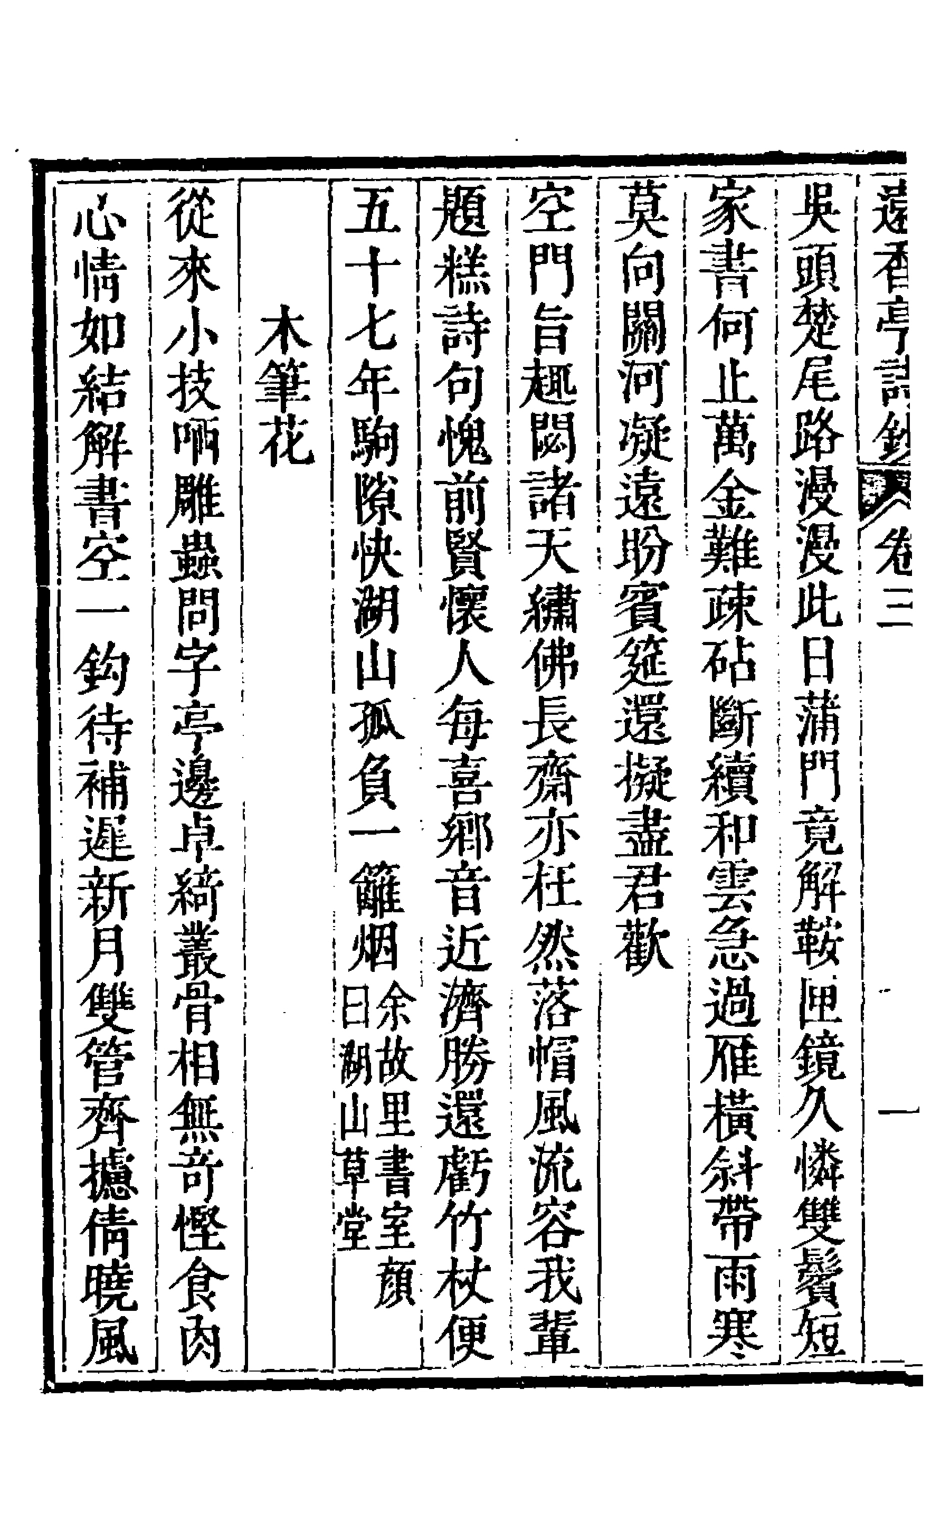 遠香亭詩鈔 卷三 一
吳頭楚尾路漫漫此日蒲門竟解鞍匣鏡久憐雙鬢短
家書何止萬金難疎砧斷續和雲急過雁橫斜帶雨寒
莫向關河凝遠盼賓筵還擬盡君歡
空門旨趣閟諸天繡佛長齋亦枉然落帽風流容我輩
題糕詩句愧前賢懷人每喜鄉音近濟勝還虧竹杖便
五十七年駒隙快湖山孤負一籬烟余故里書室顏曰湖山草堂
木筆花
從來小技哂雕蟲問字亭邊卓綺叢骨相無奇慳食肉
心情如結解書空一鈎待補遲新月雙管齊攄倩曉風